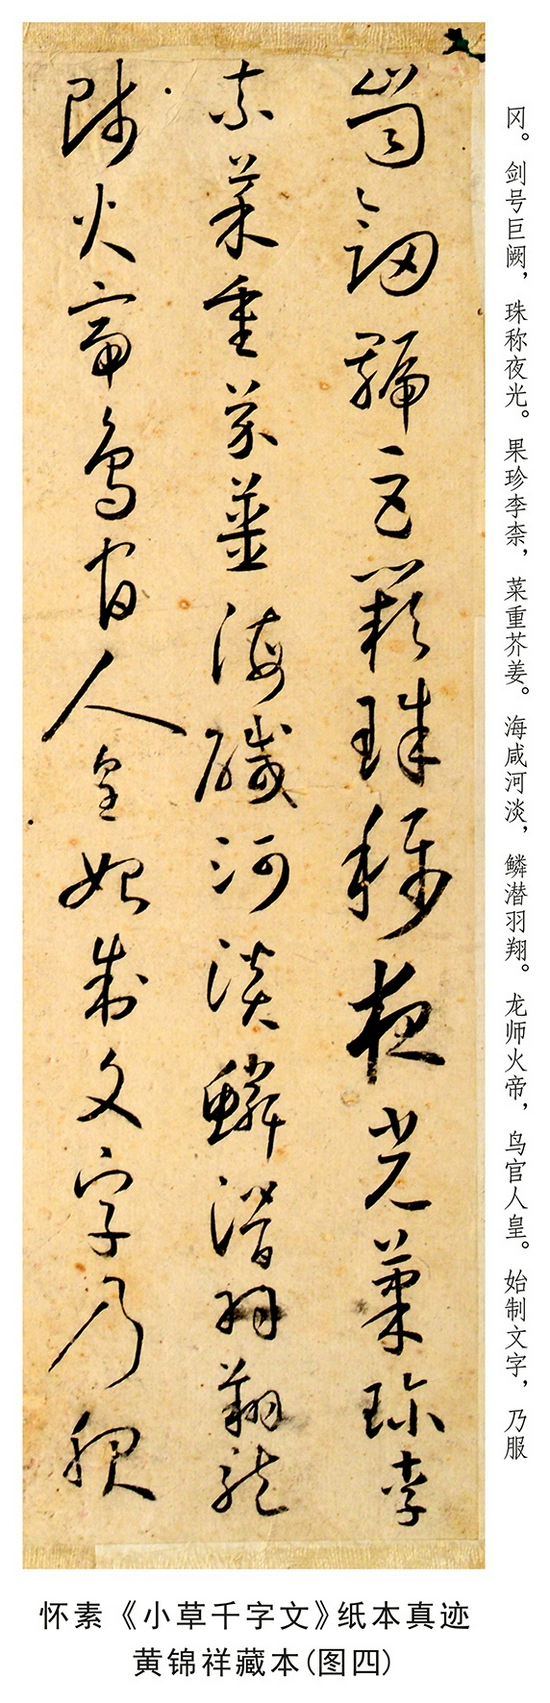 冈。剑号巨阙，珠称夜光。果珍李柰，菜重芥姜。海咸河淡，鳞潜羽翔。龙师火帝，鸟官人皇。始制文字，乃服
崗劒號巨闕珠稱夜光菓珍李
柰菜重芥薑海醎河淡鱗潛羽翔龍
師火帝鳥官人皇始制文字乃服
怀素《小草千字文》纸本真迹
黄锦祥藏本(图四)